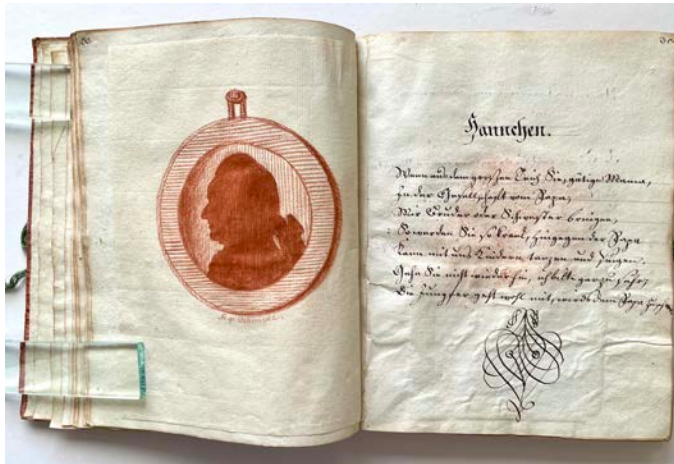 Hannchen.
Wenn aus dem grossen Teich Sie, gütige Mama,
In der Gesellschaft vom Papa,
Mir Bruder oder Schwester bringen,
So werden Sie so krank, hingegen der Papa
Kann mit uns Kindern tanzen und singen.
Gehn Sie nicht wieder hin, ich bitte gar zu sehr,
Die Jungfer geht wohl mit, wenns dem Papa